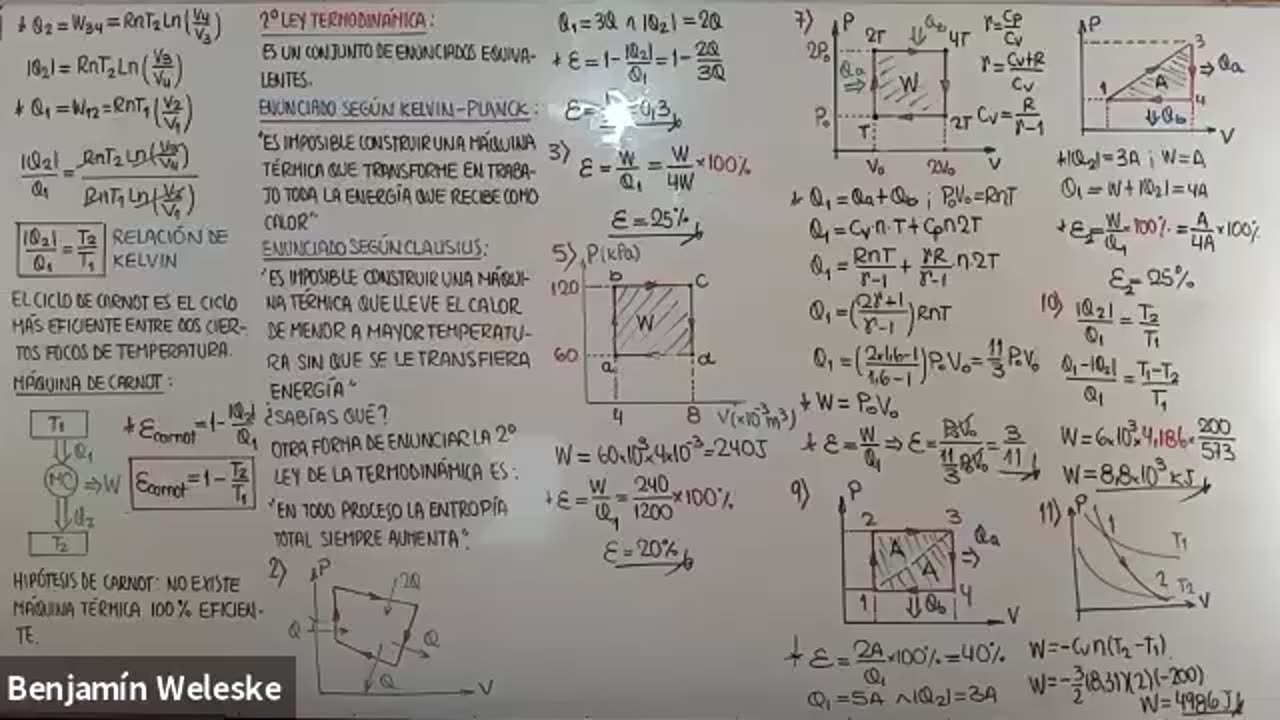 * Q₂ = W₃₄ = RnT₂Ln(V₄/V₃)
|Q₂| = RnT₂Ln(V₃/V₄)
* Q₁ = W₁₂ = RnT₁(V₂/V₁)
|Q₂|/Q₁ = RnT₂Ln(V₃/V₄)/RnT₁Ln(V₂/V₁)
|Q₂|/Q₁ = T₂/T₁ RELACIÓN DE
KELVIN
EL CICLO DE CARNOT ES EL CICLO
MÁS EFICIENTE ENTRE DOS CIER-
TOS FOCOS DE TEMPERATURA.
MÁQUINA DE CARNOT:
T₁
Q₁
MC ⇒W
Q₂
T₂
* Ɛcarnot = 1-|Q₂|/Q₁
Ɛcarnot = 1-T₂/T₁
HIPÓTESIS DE CARNOT: NO EXISTE
MÁQUINA TÉRMICA 100% EFICIEN-
TE.
Benjamín Weleske
2° LEY TERMODINÁMICA:
ES UN CONJUNTO DE ENUNCIADOS EQUIVA-
LENTES.
ENUNCIADO SEGÚN KELVIN-PLANCK:
"ES IMPOSIBLE CONSTRUIR UNA MÁQUINA
TÉRMICA QUE TRANSFORME EN TRABA-
JO TODA LA ENERGÍA QUE RECIBE COMO
CALOR"
ENUNCIADO SEGÚN CLAUSIUS:
"ES IMPOSIBLE CONSTRUIR UNA MÁQUI-
NA TÉRMICA QUE LLEVE EL CALOR
DE MENOR A MAYOR TEMPERATU-
RA SIN QUE SE LE TRANSFIERA
ENERGÍA"
¿SABÍAS QUÉ?
OTRA FORMA DE ENUNCIAR LA 2°
LEY DE LA TERMODINÁMICA ES:
"EN TODO PROCESO LA ENTROPÍA
TOTAL SIEMPRE AUMENTA".
2) P
2Q
Q
Q
Q
V
Q₁ = 3Q ∧ |Q₂| = 2Q
* Ɛ = 1-|Q₂|/Q₁ = 1-2Q/3Q
Ɛ = 0,3
3) Ɛ = W/Q₁ = W/4W × 100%
Ɛ = 25%
5) P(kPa)
b c
120
W
60
a d
4 8 V(×10⁻³m³)
W = 60×10³×4×10⁻³ = 240J
* Ɛ = W/Q₁ = 240/1200 × 100%
Ɛ = 20%
7) P
2T Qb 4T
2P₀
Qa
W
P₀
T 2T
V₀ 2V₀ V
r = Cp/Cv
r = Cv+R/Cv
Cv = R/r-1
* Q₁ = Qa + Qb ; P₀V₀ = RnT
Q₁ = Cv n·T + Cp n 2T
Q₁ = RnT/r-1 + rR/r-1·n·2T
Q₁ = (2r+1/r-1)RnT
Q₁ = (2×1,6-1/1,6-1)P₀V₀ = 11/3 P₀V₀
* W = P₀V₀
* Ɛ = W/Q₁ ⇒ Ɛ = P₀V₀/11/3 P₀V₀ = 3/11
9) P
2 3 Qa
A
A
1 4
Qb
V
* Ɛ = 2A/Q₁ × 100% = 40%
Q₁ = 5A ∧ |Q₂| = 3A
P
3
1 A ⇒Qa
4
Qb
V
* |Q₂| = 3A ; W = A
Q₁ = W + |Q₂| = 4A
* Ɛ₂ = W/Q₁ · 100% = A/4A × 100%
Ɛ₂ = 25%
10) |Q₂|/Q₁ = T₂/T₁
Q₁-|Q₂|/Q₁ = T₁-T₂/T₁
W = 6×10³×4,186 × 200/573
W = 8,8×10³ kJ
11) P
1
T₁
2 T₂
V
W = -Cv n(T₂-T₁)
W = -3/2(8,31)(2)(-200)
W = 4986J